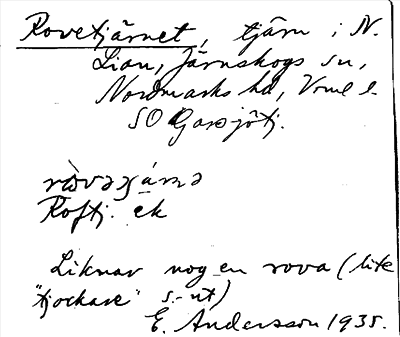 Rovetjärnet, tjärn i N.
Lian, Järnskogs sn,
Nordmarks hd, Vrml l.
SO Gassjötj.
Roftj. ek
Liknar nog en rova (lite
"tjockare" s.-ut)
E. Andersson 1935.